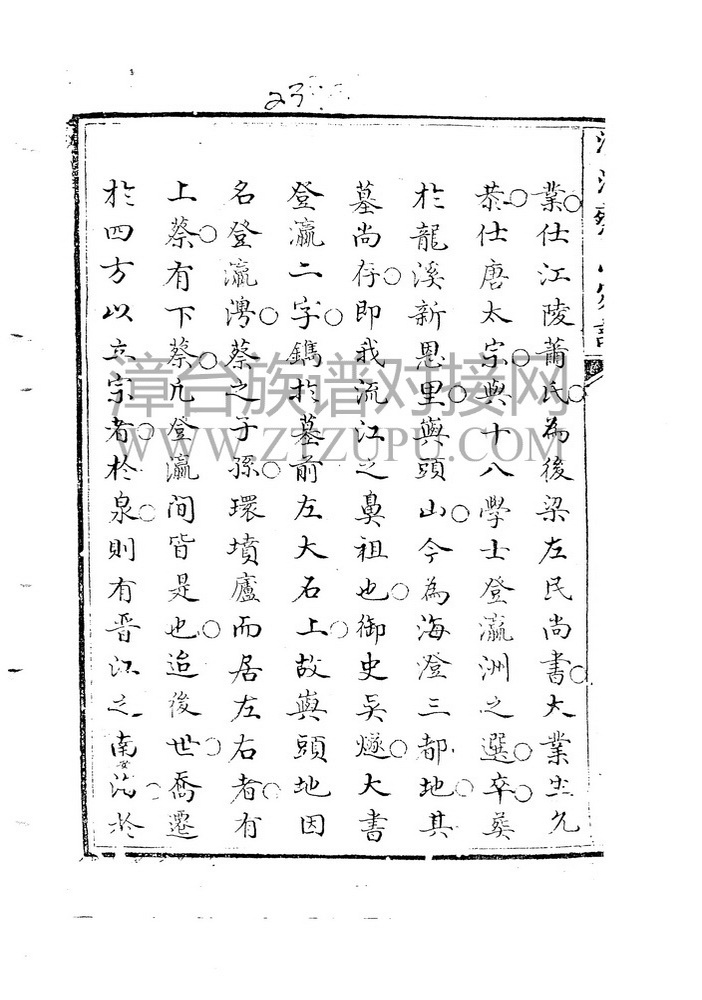 23
業仕江陵蕭氏為後梁左民尚書大業生允
恭仕唐太宗與十八學士登瀛洲之選卒葬
於龍溪新恩里輿頭山今為海澄三都地其
墓尚存即我流江之鼻祖也御史吳燧大書
登瀛二字鐫於墓前左大石上故輿頭地因
名登瀛灣蔡之子孫環墳廬而居左右者有
上蔡有下蔡凢登瀛間皆是也迨後世喬遷
於四方以立宗者於泉則有晋江之南於
漳台族谱对接网
WWW.ZTZUPU.COM